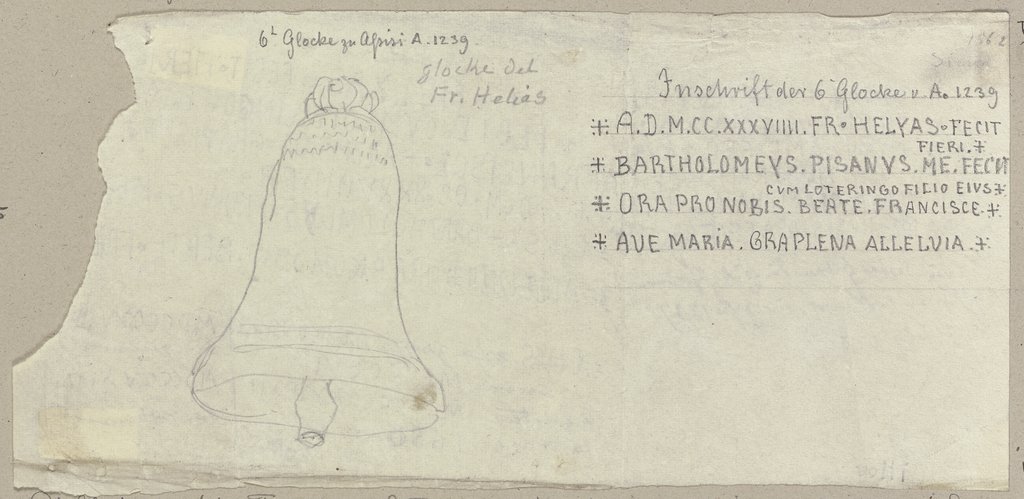 6ᵗ Glocke zu Assisi A. 1239
glocke del
Fr. Helias
Inschrift der 6 Glocke v. A. 1239
A. D. M. CC. XXXVIIII. FR. HELYAS. FECIT
FIERI.
BARTHOLOMEVS. PISANVS. ME. FECIT
CVM LOTERINGO FILIO EIVS
ORA PRO NOBIS. BEATE. FRANCISCE.
AVE MARIA. GRAPLENA ALLELVIA.